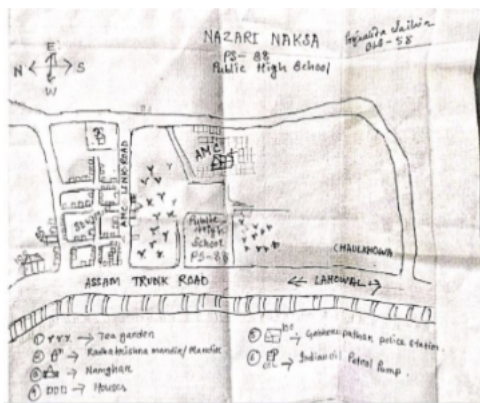 NAZARI NAKSA
PS-88
Public High School
BLO-58
E
N
S
W
AMC
AMC LINK ROAD
Public
High
School
PS-88
CHAULKHOWA
ASSAM TRUNK ROAD
LAHOWAL
① → Tea garden
② → Radhakrishna mandir/Mandir
③ → Namghar
④ → Houses
⑤ → police station.
⑥ → Indian oil Petrol Pump.